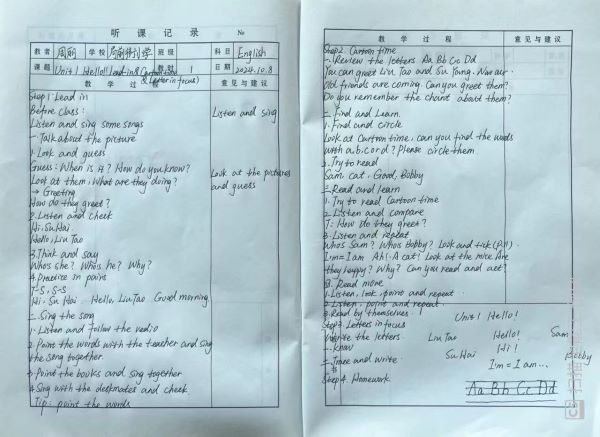 听 课 记 录 No
教者 周丽 学校 班级 科目 English
课题 Unit 1 Hello! (Lead in & Cartoon time & Letter in focus) 教时 1 日期 2024.10.8
教 学 过 程 意见与建议
Step 1: Lead in
Before class:
Listen and sing some songs Listen and sing
一. Talk about the picture
1. Look and guess
Guess: When is it? How do you know? Look at the pictures
Look at them, What are they doing? and guess
→ Greeting
How do they greet?
2. Listen and check
Hi, Su Hai.
Hello, Liu Tao
3. Think and say
Who's she? Who's he? Why?
4. Practice in pairs
T-S, S-S
Hi, Su Hai. Hello, Liu Tao Good morning
二. Sing the song
1. Listen and follow the vedio
2. Point the words with the teacher and sing
the song together.
3. Point the books and sing together
4. Sing with the deskmates and check.
Tip: point the words
教 学 过 程 意见与建议
Step 2. Cartoon time
一. Review the letters Aa Bb Cc Dd
You can greet Liu Tao and Su Yang. Now our
old friends are coming. Can you greet them?
Do you remember the chant about them?
二. Find and learn
1. Find and circle
Look at Cartoon time, can you find the words
with a, b, c or d? Please circle them.
2. Try to read
Sam cat. Good, Bobby
三. Read and learn
1. Try to read Cartoon time
2. Listen and compare
T: How do they greet?
3. Listen and repeat
Who's Sam? Who's Bobby? Look and tick
I'm = I am Ah! A cat! Look at the mice. Are
they happy? Why? Can you read and act?
四. Read more
1. Listen, look, point and repeat.
2. Listen, point and repeat.
3. Read by themselves. Unit 1 Hello!
Step 3. Letters in focus
Write the letters. Liu Tao Hello! Sam
一. know Su Hai Hi! Bobby
二. Trace and write I'm = I am...
Step 4. Homework
Aa Bb Cc Dd